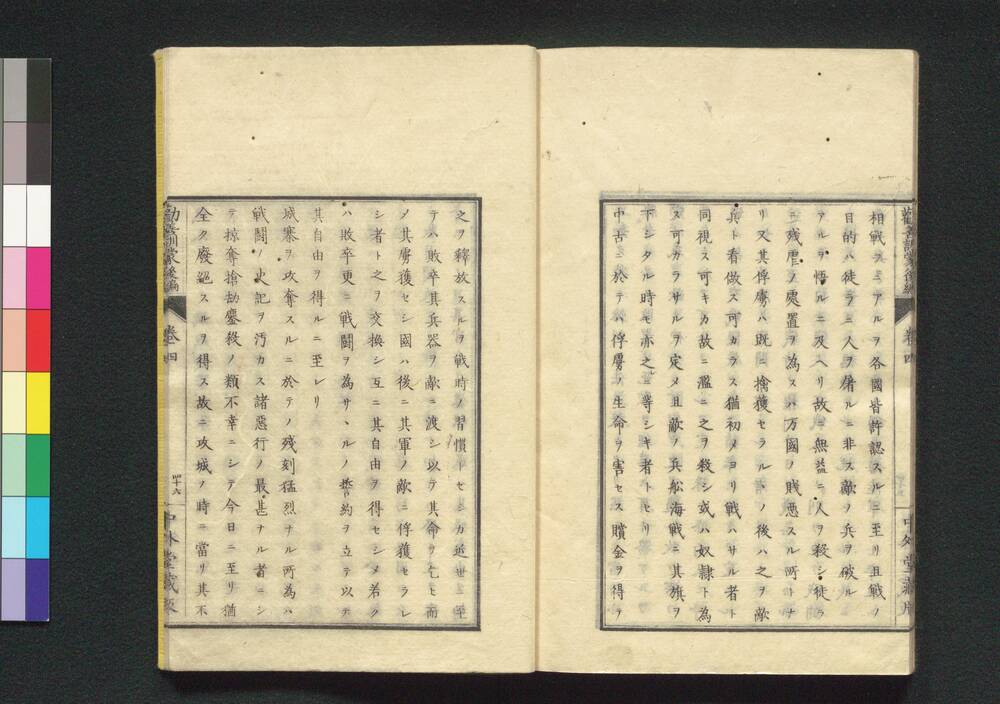 勸善訓蒙後編
卷四
相戰フニアルヲ各國皆許認スルニ至リ且戰ノ
目的ハ徒ラニ人ヲ屠ルニ非ス敵ノ兵ヲ破ル
アルヲ悟ルニ及ヘリ故ニ無益ニ人ヲ殺シ徒ラ
ニ殘虐ノ處置ヲ為スハ万國ノ賤惡スル所トナ
リ又其俘虜ハ既ニ擒獲セラルヽノ後ハ之ヲ敵
兵ト看做ス可カラス猶初メヨリ戰ハサル者ト
同視ス可キカ故ニ濫ニ之ヲ殺シ或ハ奴隷ト為
ス可カラサルヲ定メ且敵ノ兵船海戰ニ其旗ヲ
下シタル時モ亦之ニ等シキ者トセリ
中古ニ於テハ俘虜ノ生命ヲ害セス贖金ヲ得テ
之ヲ釋放スルヲ戰時ノ習慣トセシカ近世ニ至
テハ敗卒其兵器ヲ敵ニ渡シ以テ其命ヲ乞ヒ而
メ其虜獲セシ國ハ後ニ其軍ノ敵ニ俘獲セラレ
シ者ト之ヲ交換シ互ニ其自由ヲ得セシメ若ク
ハ敗卒更ニ戰鬪ヲ為サヽルノ誓約ヲ立テ以テ
其自由ヲ得ルニ至レリ
城寨ヲ攻奪スルニ於テノ殘刻猛烈ナル所為ハ
戰鬪ノ史記ヲ汚カス諸惡行ノ最甚ナル者ニシ
テ掠奪搶劫鏖殺ノ類不幸ニシテ今日ニ至リ猶
全ク廢絕スルヲ得ス故ニ攻城ノ時ニ當リ其不
卷四
四十六